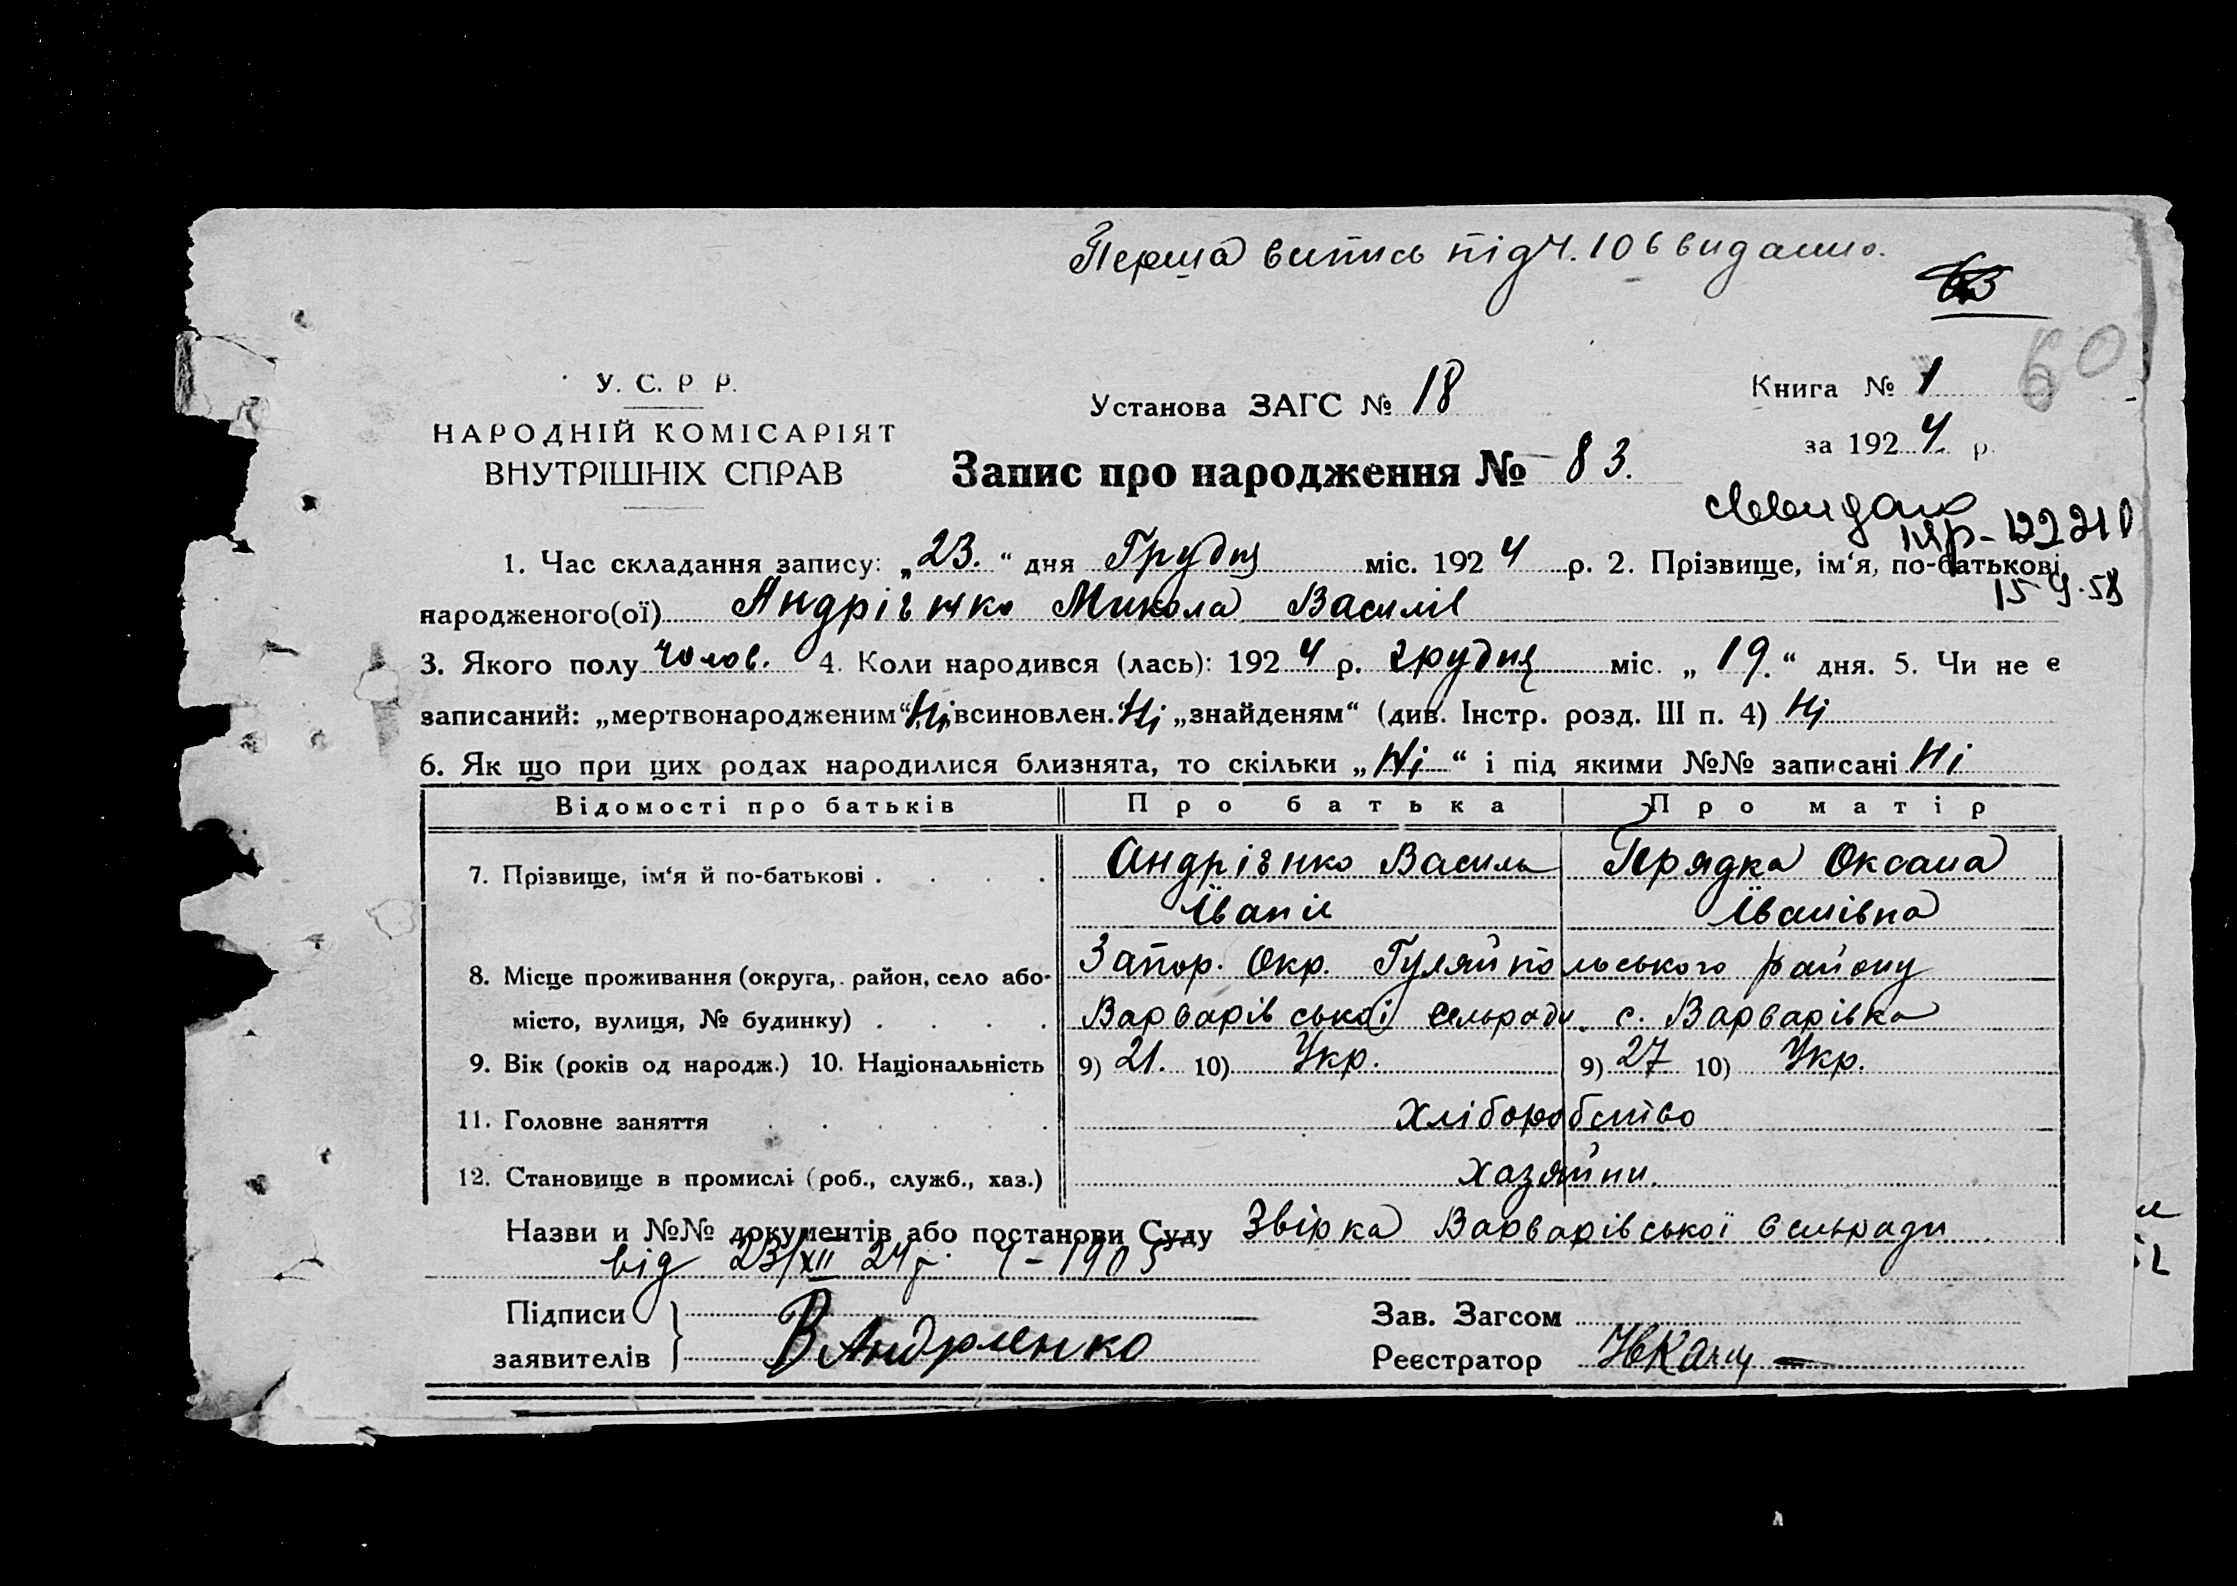 Перша випись під Ч. 106 видано.
63
60
У. С. Р Р.
НАРОДНІЙ КОМІСАРІЯТ
ВНУТРІШНІХ СПРАВ
Установа ЗАГС № 18
Книга № 1
за 1924 р.
Запис про народження № 83.
1. Час складання запису: „23.“ дня Грудня міс. 1924 р. 2. Прізвище, ім‘я, по-батькові
15 58
народженого(ої) Андрієнко Микола Василів
3. Якого полу чолов. 4. Коли народився (лась): 1924 р. грудня міс. „19.“ дня. 5. Чи не є
записаний: „мертвонародженим“ Ні всиновлен.“ Ні „знайденям“ (див. Інстр. розд. III п. 4) Ні
6. Як що при цих родах народилися близнята, то скільки „Ні“ і під якими №№ записані Ні
Відомості про батьків Про батька Про матір
7. Прізвище, ім‘я й по-батькові . . . . Андрієнко Василь Прядка Оксана
Іванів Іванівна
8. Місце проживання (округа, район, село або Запор. Окр. Гуляйпольського району
місто, вулиця, № будинку) . . . . Варварівської сельради. с. Варварівка
9. Вік (років од народж.) 10. Національність 9) 21. 10) Укр. 9) 27 10) Укр.
11. Головне заняття . . . . . . хліборобство
12. Становище в промислі (роб., служб., хаз.) хазяйни.
Назви и №№ документів або постанови Суду Звірка Варварівської сельради
від 23/XII 24 р. Ч – 1905
Підписи
заявителів } В Андриенко
Зав. Загсом
Реєстратор